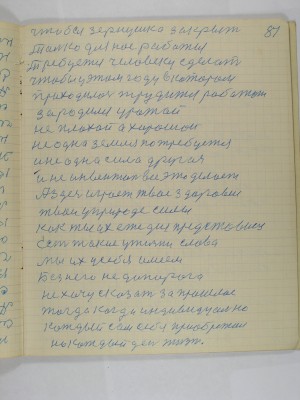 чтобы зернушко за зерном
81
Только для нас работы
Требуется человеку сделать
чтобы в этом году в котором
приходится трудится работать
за родился урожай
не плохой а хороший
не одна земля потребуется
и не одна сила другая
и не инвентовые это делает
А здесь играет твое здоровие
твои у природе силы
как ты их уже для представиш
Есть такие у жизни слова
мы их у себя имеем
Без него не до порога
не хочу сказать за прошлое
тогда когда индивидуально
каждый сам себе приобретал
на каждый день жизн.